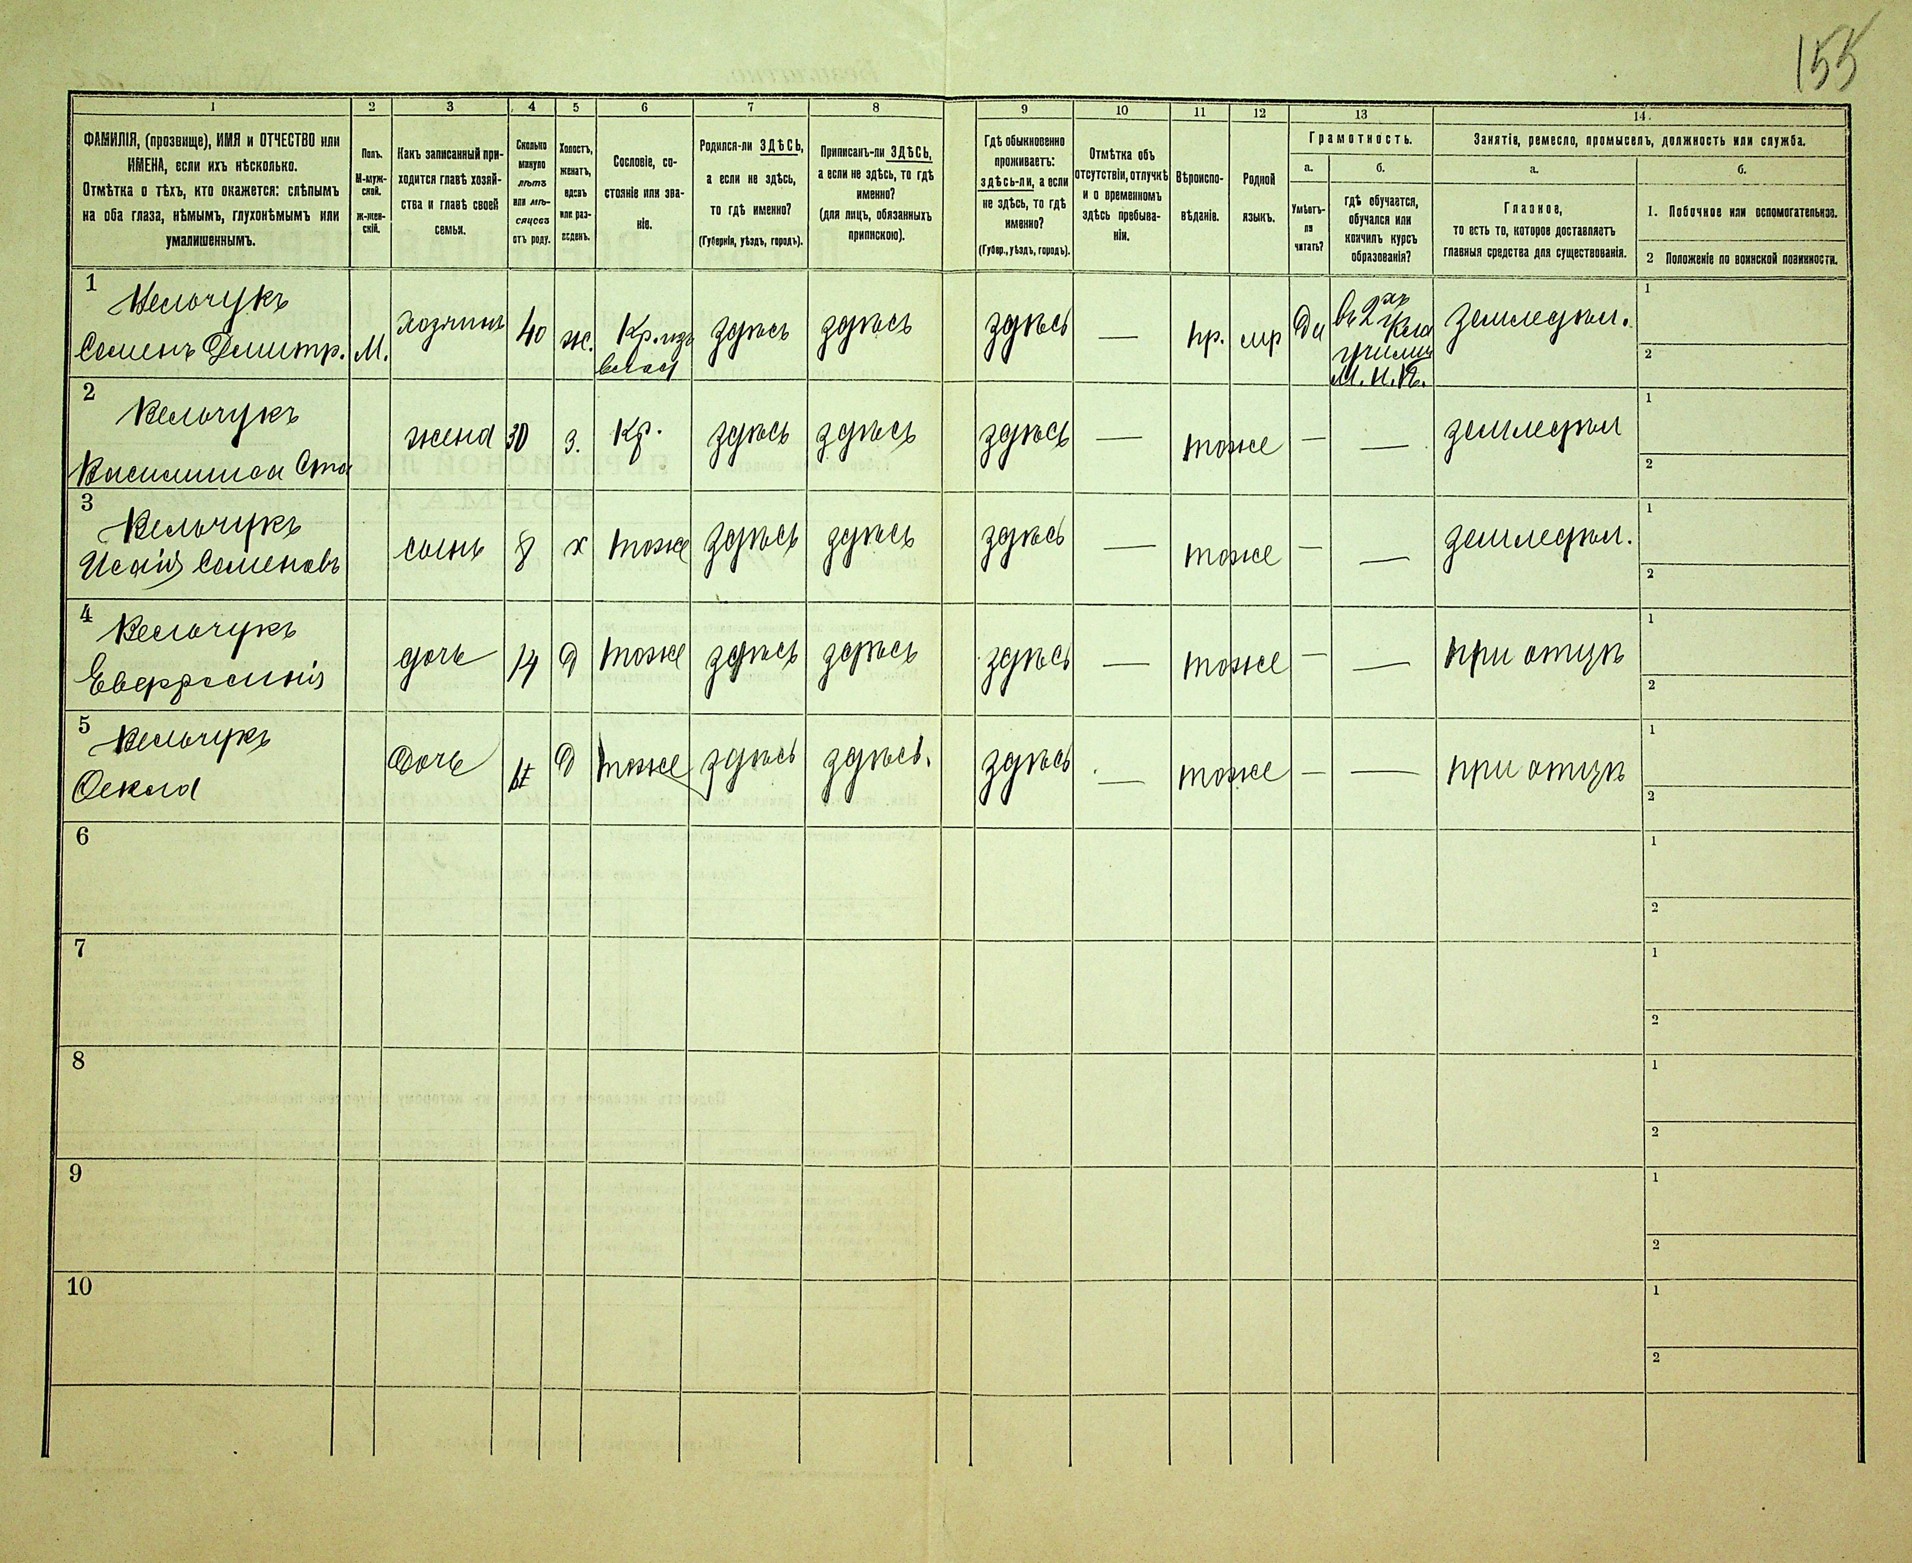 155
1 2 3 4 5 6 7 8 9 10 11 12 13 14.
ФАМИЛІЯ, (прозвище), ИМЯ и ОТЧЕСТВО или
ИМЕНА, если ихъ нѣсколько.
Отмѣтка о тѣхъ, кто окажется: слѣпымъ
на оба глаза, нѣмымъ, глухонѣмымъ или
умалишеннымъ.
Полъ.
М-муж-
ской.
ж-жен-
скій.
Какъ записанный при-
ходится главѣ хозяй-
ства и главѣ своей
семьи.
Сколько
минуло
лѣтъ
или мѣ-
сяцевъ
отъ роду.
Холостъ,
женатъ,
вдовъ
или раз-
веденъ.
Сословіе, со-
стояніе или зва-
ніе.
Родился-ли ЗДѢСЬ,
а если не здѣсь,
то гдѣ именно?
(Губернія, уѣздъ, городъ).
Приписанъ-ли ЗДѢСЬ,
а если не здѣсь, то гдѣ
именно?
(для лицъ, обязанныхъ
припискою).
Гдѣ обыкновенно
проживаетъ:
здѣсь-ли, а если
не здѣсь, то гдѣ
именно?
(Губер., уѣздъ, городъ).
Отмѣтка объ
отсутствіи, отлучкѣ
и о временномъ
здѣсь пребыва-
ніи.
Вѣроиспо-
вѣданіе.
Родной
языкъ.
Грамотность.
а.
Умѣетъ-
ли
читать?
б.
гдѣ обучается,
обучался или
кончилъ курсъ
образованія?
Занятіе, ремесло, промыселъ, должность или служба.
а.
Главное,
то есть то, которое доставляетъ
главныя средства для существованія.
б.
1. Побочное или вспомогательное.
2 Положеніе по воинской повинности.
1
Вельчукъ
Семенъ Димитр.
М.
хозяинъ
40
ж.
Кр. изъ
влад
здѣсь
здѣсь
здѣсь
—
пр.
мр
Да
въ 2хъ
Кла
училищ
М. н. п.
земледѣл.
1
2
2
Вельчукъ
Василиса
жена
30
з.
Кр.
здѣсь
здѣсь
здѣсь
—
тоже
—
—
земледѣл
1
2
3
Вельчукъ
Исаія Семеновъ
сынъ
8
х
тоже
здѣсь
здѣсь
здѣсь
—
тоже
—
—
земледѣл.
1
2
4
Вельчукъ
Евфросинія
дочь
14
д
тоже
здѣсь
здѣсь
здѣсь
—
тоже
—
—
при отцѣ
1
2
5
Вельчукъ
Фекла
дочь
д
тоже
здѣсь
здѣсь.
здѣсь
—
тоже
—
—
при отцѣ
1
2
6
1
2
7
1
2
8
1
2
9
1
2
10
1
2